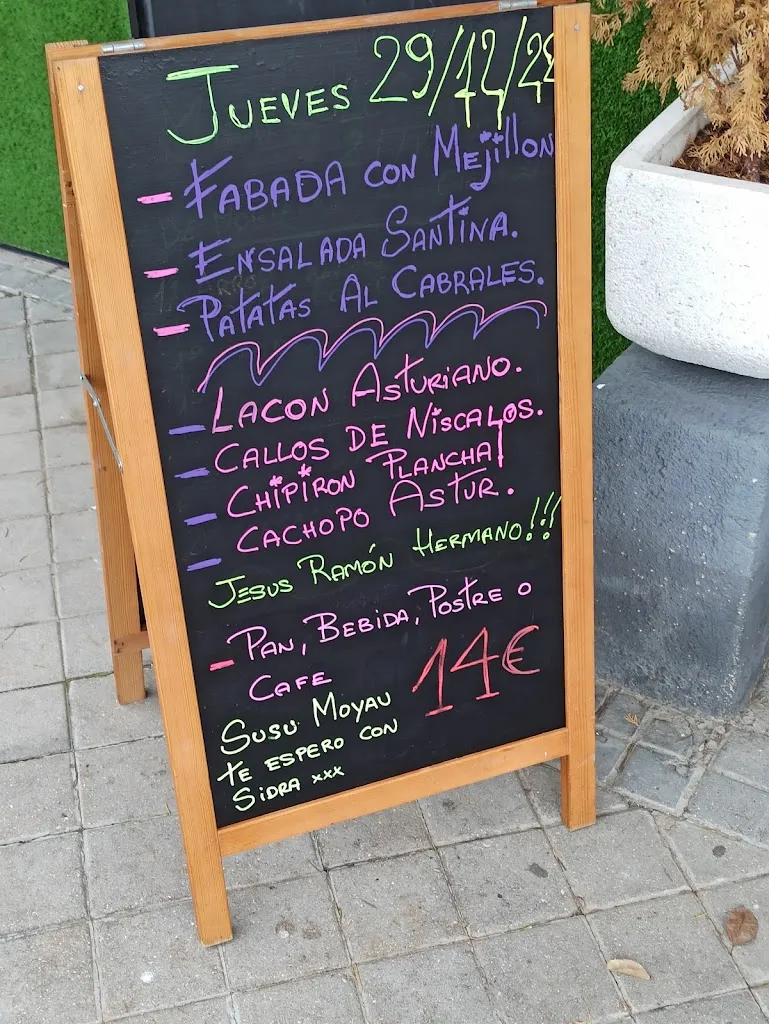 JUEVES 29/12/22
- FABADA CON MEJILLON
- ENSALADA SANTINA.
- PATATAS AL CABRALES.
- LACON ASTURIANO.
- CALLOS DE NISCALOS.
- CHIPIRON PLANCHA
- CACHOPO ASTUR.
JESUS RAMÓN HERMANO!!!
- PAN, BEBIDA, POSTRE O
CAFE 14€
SUSU MOYAU
TE ESPERO CON
SIDRA xxx